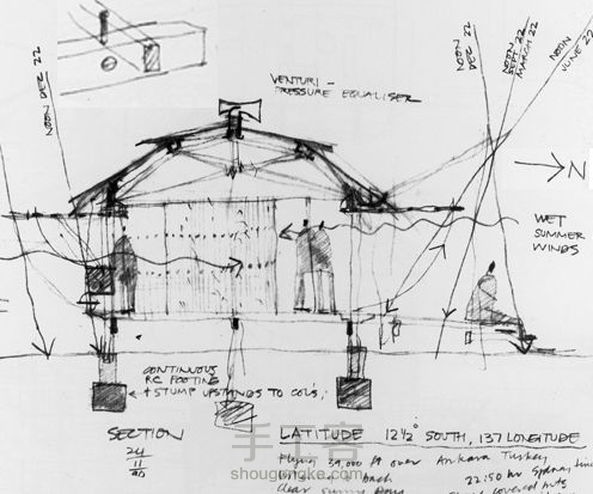 NOON DEC 22
VENTURI -
PRESSURE EQUALISER
NOON
DEC 22
NOON
SEPT 22
MARCH 22
NOON
JUNE 22
N
WET
SUMMER
WINDS
CONTINUOUS
RC FOOTING
+ STUMP UPSTANDS TO COL'S,
SECTION
24
11
90
LATITUDE 12½° SOUTH, 137 LONGITUDE
Flying 39,000 ft over Ankara Turkey
back 22:50 hr Sydney time
clear sunny covered
手工客
shougongke.com